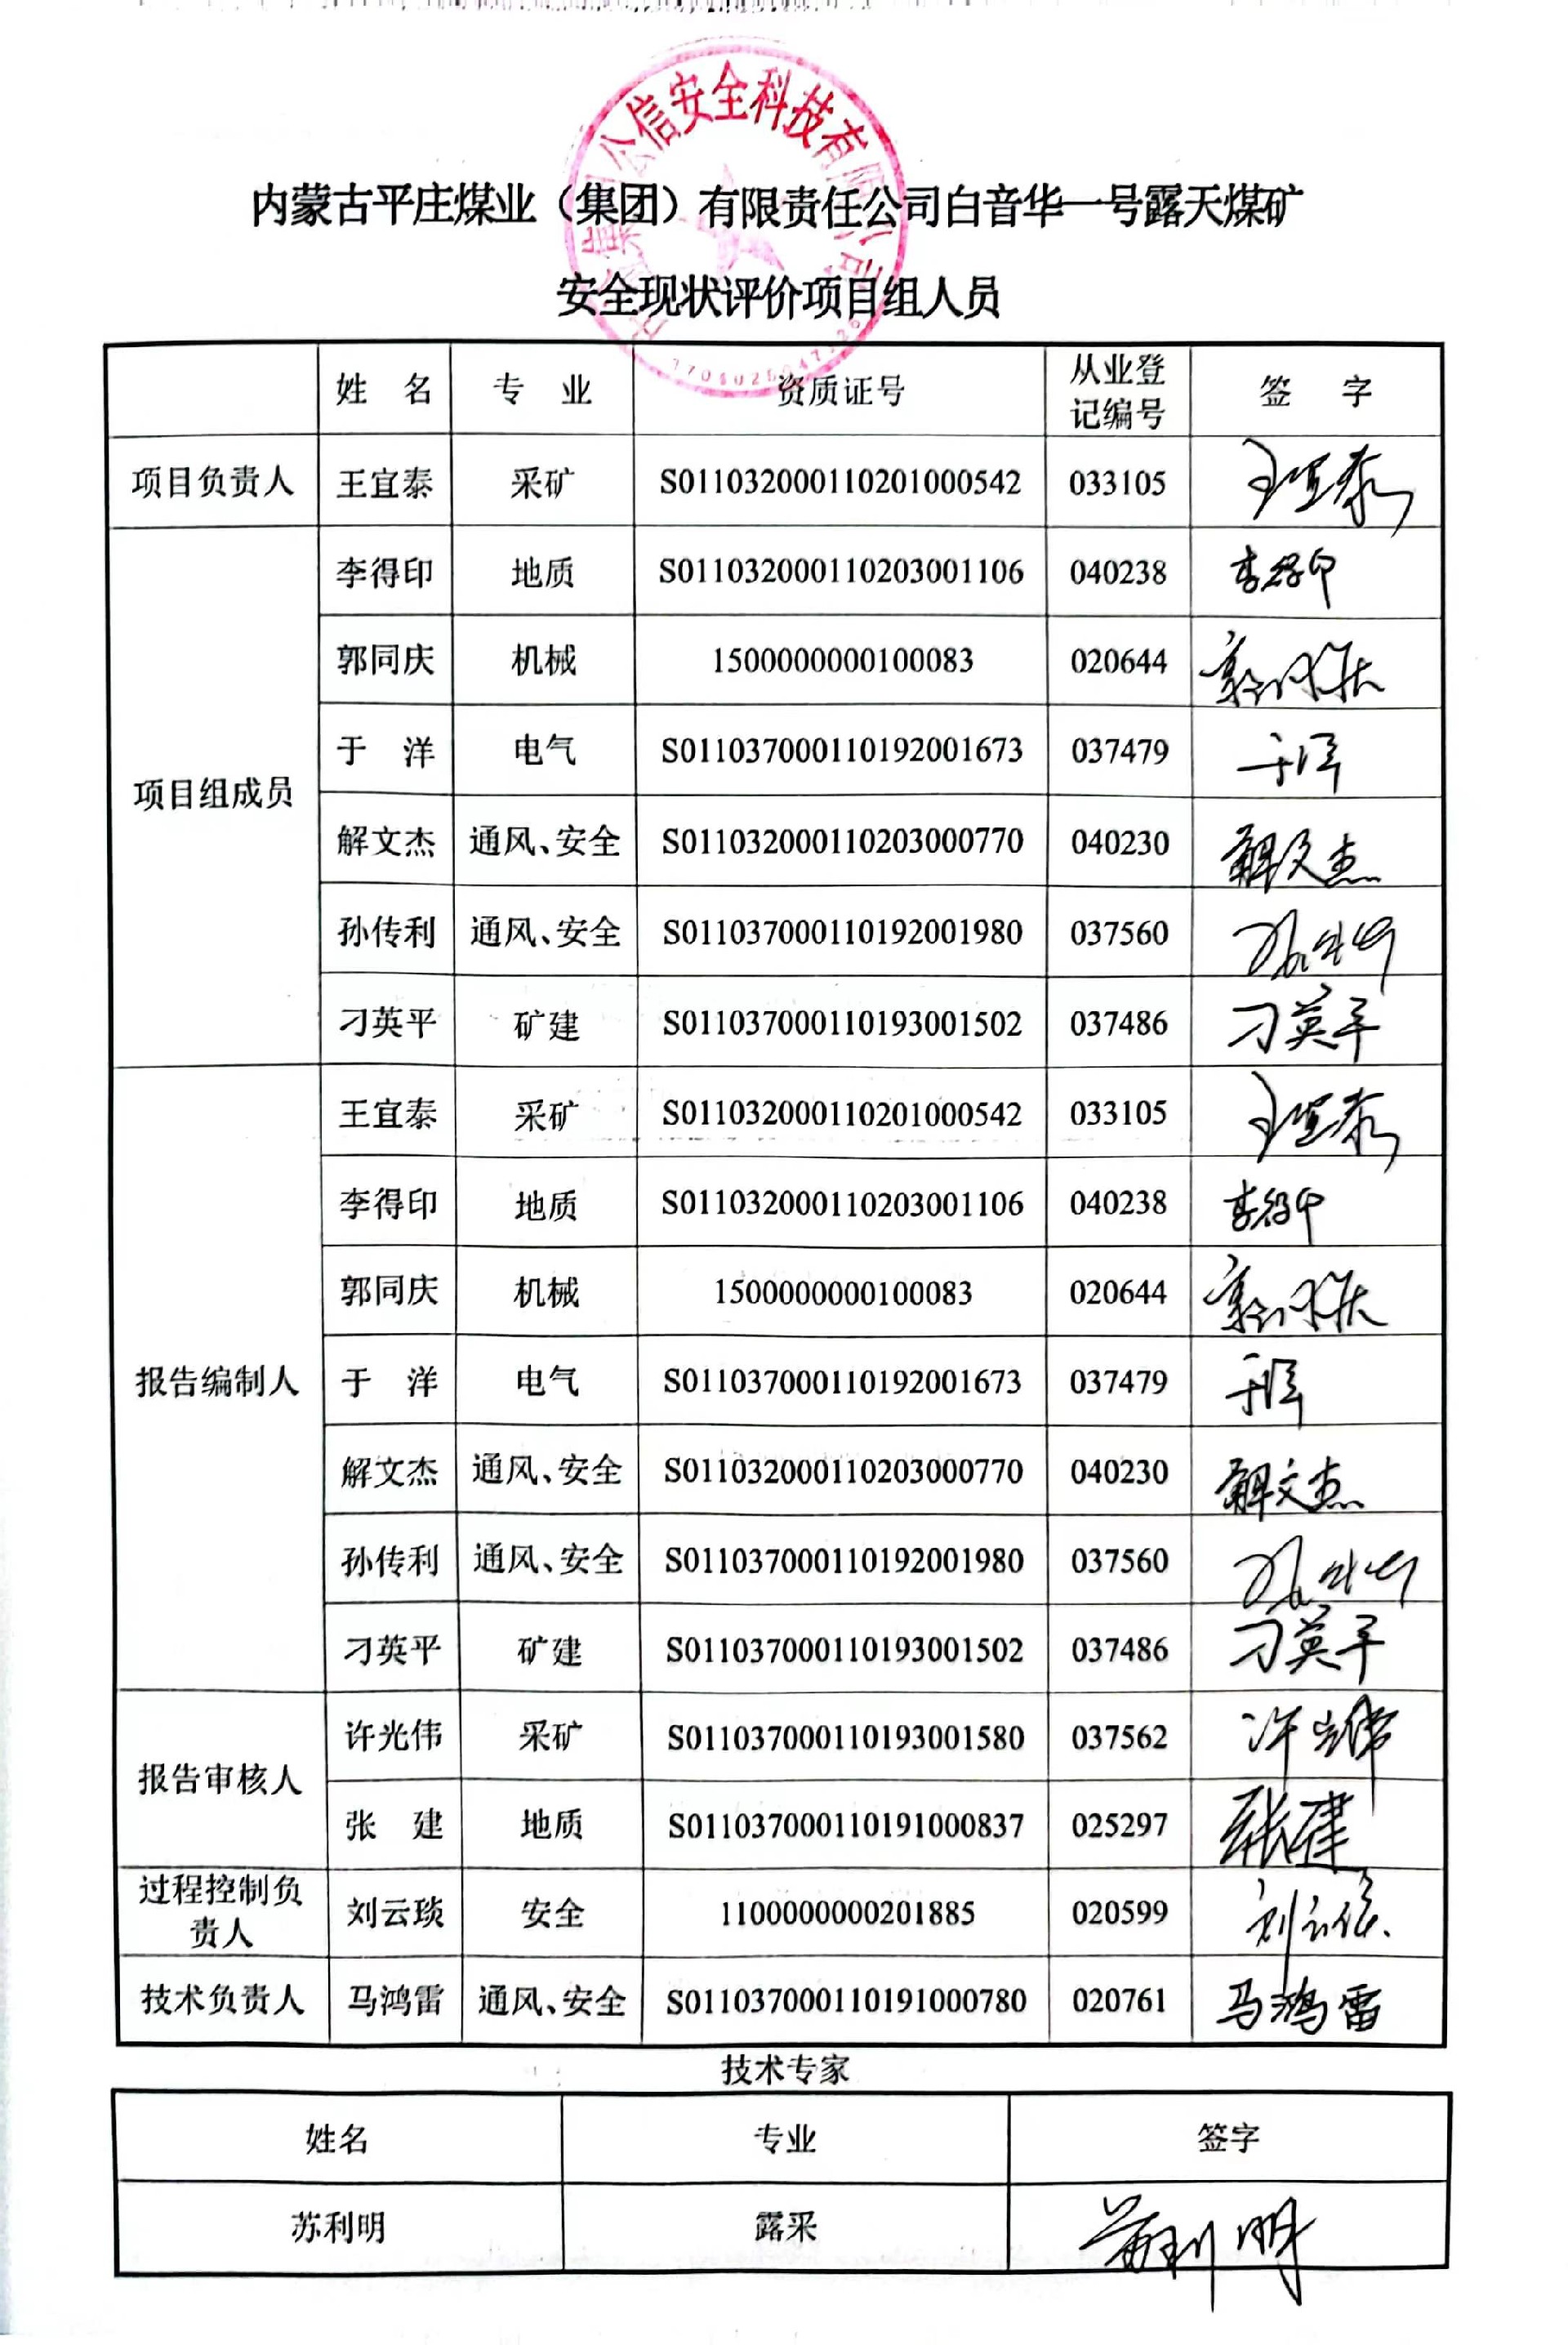 公信安全科技有限公司
内蒙古平庄煤业（集团）有限责任公司白音华一号露天煤矿
安全现状评价项目组人员
姓 名 专 业 资质证号 从业登记编号 签 字
项目负责人 王宜泰 采矿 S011032000110201000542 033105 王宜泰
项目组成员
李得印 地质 S011032000110203001106 040238 李得印
郭同庆 机械 1500000000100083 020644 郭同庆
于 洋 电气 S011037000110192001673 037479 于洋
解文杰 通风、安全 S011032000110203000770 040230 解文杰
孙传利 通风、安全 S011037000110192001980 037560 孙传利
刁英平 矿建 S011037000110193001502 037486 刁英平
报告编制人
王宜泰 采矿 S011032000110201000542 033105 王宜泰
李得印 地质 S011032000110203001106 040238 李得印
郭同庆 机械 1500000000100083 020644 郭同庆
于 洋 电气 S011037000110192001673 037479 于洋
解文杰 通风、安全 S011032000110203000770 040230 解文杰
孙传利 通风、安全 S011037000110192001980 037560 孙传利
刁英平 矿建 S011037000110193001502 037486 刁英平
报告审核人
许光伟 采矿 S011037000110193001580 037562 许光伟
张 建 地质 S011037000110191000837 025297 张建
过程控制负责人 刘云琰 安全 1100000000201885 020599 刘云琰
技术负责人 马鸿雷 通风、安全 S011037000110191000780 020761 马鸿雷
技术专家
姓名 专业 签字
苏利明 露采 苏利明